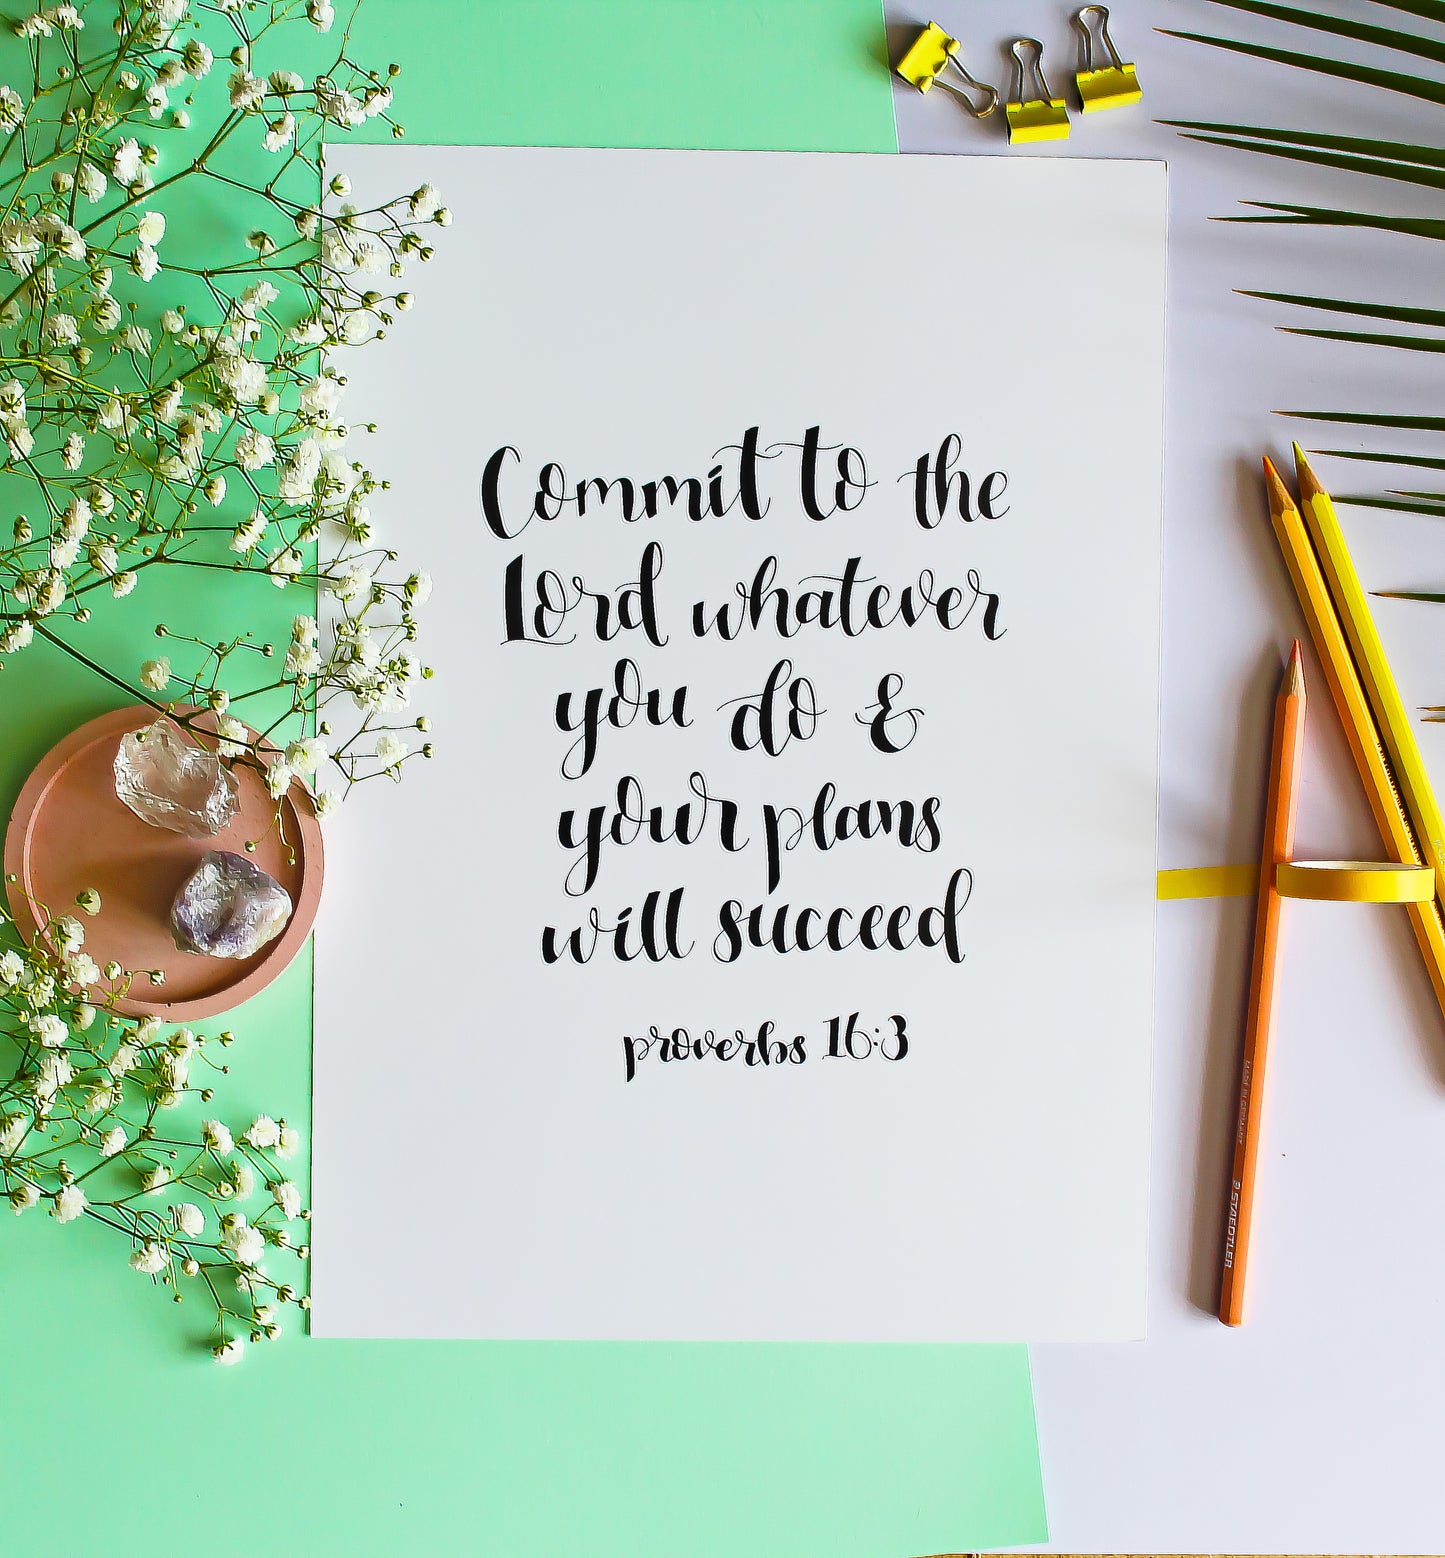 Commit to the
Lord whatever
you do &
your plans
will succeed
proverbs 16:3
MADE IN GERMANY
STAEDTLER